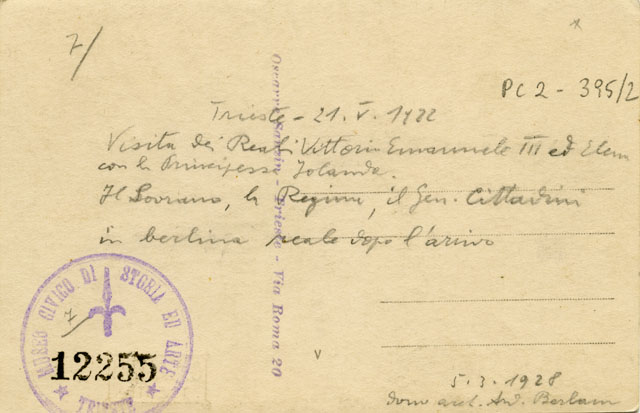 7/
PC 2 - 395/2
Trieste - 21. V. 1922
Visita dei Reali Vittorio Emanuele III ed Elena
con la Principessa Jolanda.
Il Sovrano, la Regina, il Gen. Cittadini
in berlina reale dopo l'arrivo
- Trieste - Via Roma 20
MUSEO CIVICO DI STORIA ED ARTE
TRIESTE
7/
12255
v
5. 3. 1928
dono arch. Ant. Berlam